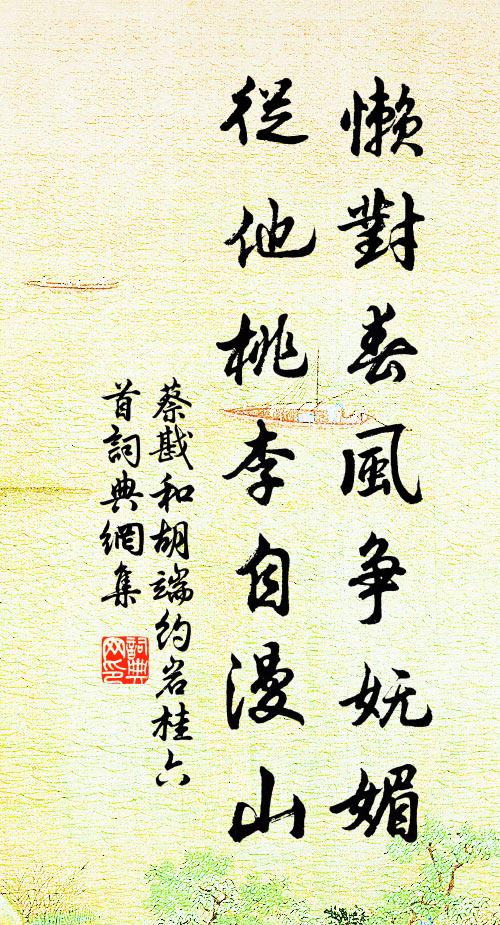 懶對春風争妩媚
從他桃李自漫山
蔡戡和胡端約岩桂六
首詞典網集
詞典网印